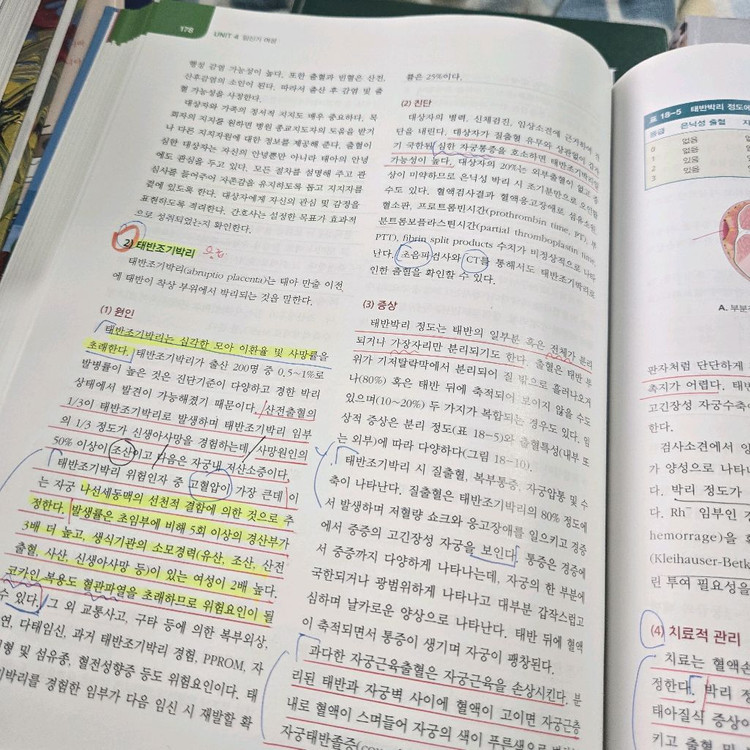 178
UNIT 4 임신기 여성
행성 감염 가능성이 높다. 또한 출혈과 빈혈은 산전,
산후감염의 소인이 된다. 따라서 출산 후 감염 및 출
혈 가능성을 사정한다.
대상자와 가족의 정서적 지지도 매우 중요하다. 목
회자의 지지를 원하면 병원 종교지도자의 도움을 받거
나 다른 지지자원에 대한 정보를 제공해 준다. 출혈이
심한 대상자는 자신의 안녕뿐만 아니라 태아의 안녕
에도 관심을 두고 있다. 모든 절차를 설명해 주고 관
심사를 들어주어 자존감을 유지하도록 돕고 지지자를
곁에 있도록 한다. 대상자에게 자신의 관심 및 감정을
표현하도록 격려한다. 간호사는 설정한 목표가 효과적
으로 성취되었는지 확인한다.
2) 태반조기박리
태반조기박리(abruptio placenta)는 태아 만출 이전
에 태반이 착상 부위에서 박리되는 것을 말한다.
(1) 원인
태반조기박리는 심각한 모아 이환율 및 사망률을
초래한다. 태반조기박리가 출산 200명 중 0.5~1%로
발병률이 높은 것은 진단기준이 다양하고 경한 박리
상태에서 발견이 가능해졌기 때문이다. 산전출혈의
1/3이 태반조기박리로 발생하며 태반조기박리 임부
의 1/3 정도가 신생아사망을 경험하는데, 사망원인의
50% 이상이 조산이고 다음은 자궁내 저산소증이다.
태반조기박리 위험인자 중 고혈압이 가장 큰데 이
는 자궁 나선세동맥의 선천적 결함에 의한 것으로 추
정한다. 발생률은 초임부에 비해 5회 이상의 경산부가
3배 더 높고, 생식기관의 소모경력(유산, 조산, 산전
출혈, 사산, 신생아사망 등)이 있는 여성이 2배 높다.
코카인 복용도 혈관파열을 초래하므로 위험요인이 될
수 있다. 그 외 교통사고, 구타 등에 의한 복부외상,
연, 다태임신, 과거 태반조기박리 경험, PPROM, 자
혈 및 섬유종, 혈전성향증 등도 위험요인이다. 태
박리를 경험한 임부가 다음 임신 시 재발할 확
률은 25%이다.
(2) 진단
대상자의 병력, 신체검진, 임상소견에 근거하여 진
단을 내린다. 대상자가 질출혈 유무와 상관없이
기 국한된 심한 자궁통증을 호소하면 태반조기박리
가능성이 높다. 대상자의 20%는 외부출혈이 없고
상이 미약하므로 은닉성 박리 시 조기분만으로 오인할
수도 있다. 혈액검사결과 혈액응고장애로 섬유소원,
혈소판, 프로트롬빈시간(prothrombin time, PT), 부
분트롬보플라스틴시간(partial thromboplastin time,
PTT), fibrin split products 수치가 비정상적으로 나타
난다. 초음파검사와 CT를 통해서도 태반조기박리로
인한 출혈을 확인할 수 있다.
(3) 증상
태반박리 정도는 태반의 일부분 혹은 전체가 분리
되거나 가장자리만 분리되기도 한다. 출혈은 태반 부
위가 기저탈락막에서 분리되어 질 밖으로 흘러나오거
나(80%) 혹은 태반 뒤에 축적되어 보이지 않을 수도
있으며(10~20%) 두 가지가 복합되는 경우도 있다. 임
상적 증상은 분리 정도(표 18-5)와 출혈특성(내부 또
는 외부)에 따라 다양하다(그림 18-10).
태반조기박리 시 질출혈, 복부통증, 자궁압통 및 수
축이 나타난다. 질출혈은 태반조기박리의 80% 정도에
서 발생하며 저혈량 쇼크와 응고장애를 일으키고 경증
에서 중증의 고긴장성 자궁을 보인다. 통증은 경증에
서 중증까지 다양하게 나타나는데, 자궁의 한 부분에
국한되거나 광범위하게 나타나고 대부분 갑작스럽고
심하며 날카로운 양상으로 나타난다. 태반 뒤에 혈액
이 축적되면서 통증이 생기며 자궁이 팽창된다.
과다한 자궁근육출혈은 자궁근육을 손상시킨다. 분
리된 태반과 자궁벽 사이에 혈액이 고이면 자궁근층
내로 혈액이 스며들어 자궁의 색이 푸루색으로
자궁태반졸증
표 18-5 태반박리 정도에
등급 은닉성 출혈
0 없음
1 없음
2 있음
3 있음
A. 부분
판자처럼 단단하게
촉지가 어렵다. 태반
고긴장성 자궁수축이
한다.
검사소견에서 양
가 양성으로 나타나
다. 박리 정도가
다. Rh⁻ 임부인 경
hemorrage)을 확
(Kleihauser-Betk
린 투여 필요성을
(4) 치료적 관리
치료는 혈액손
정한다. 박리 정
태아질식 증상이
키고 출혈